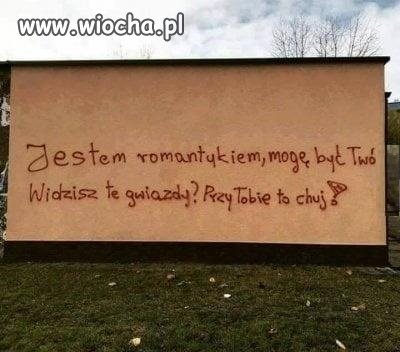 www.wiocha.pl
Jestem romantykiem, mogę być Twó
Widzisz te gwiazdy? Przy Tobie to chuj!